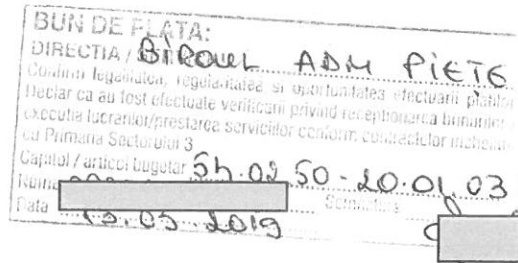 BUN DE PLATA:
DIRECTIA / BIROUL ADM PIETE
Confirm legalitatea, regularitatea si oportunitatea efectuarii platilor
Declar ca au fost efectuate verificarii privind receptionarea bunurilor
executia lucrarilor/prestarea serviciilor conform contractelor incheiate
cu Primaria Sectorului 3
Capitol / articol bugetar 54.02.50-20.01.03
Nume Semnatura
Data 2019